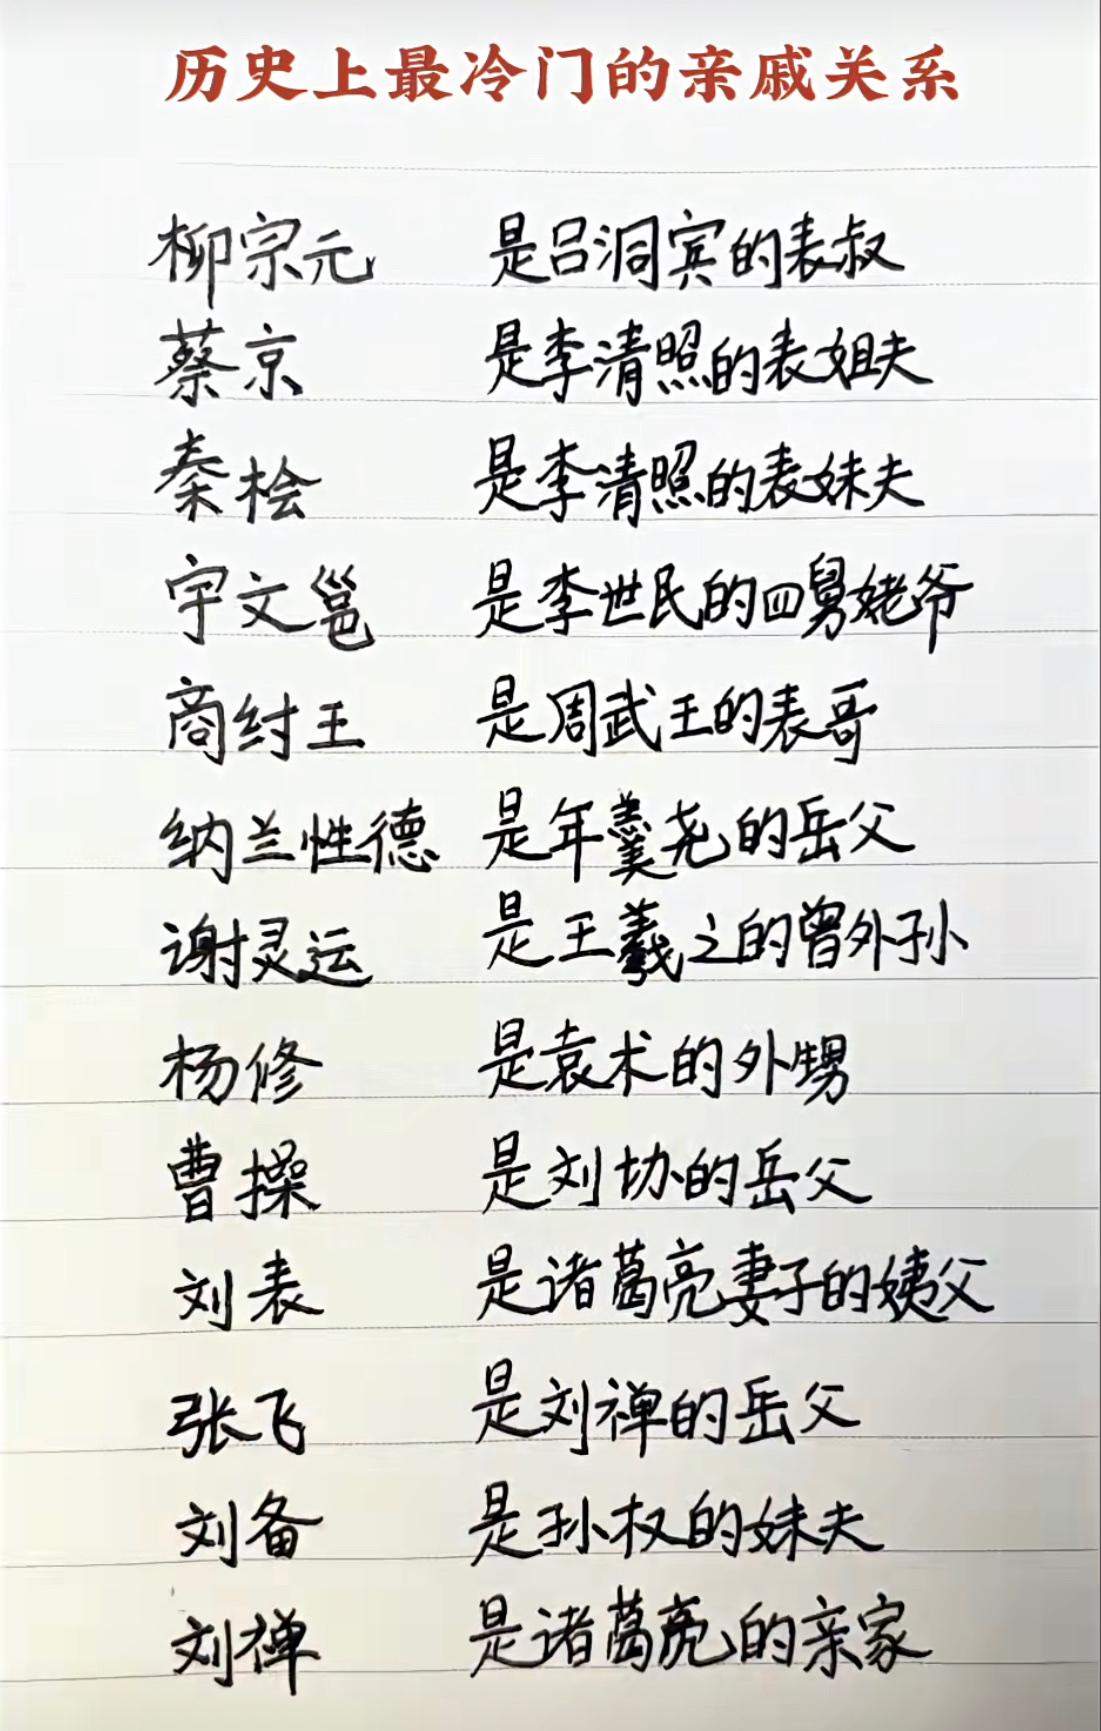 历史上最冷门的亲戚关系
柳宗元 是吕洞宾的表叔
蔡京 是李清照的表姐夫
秦桧 是李清照的表妹夫
宇文邕 是李世民的四舅姥爷
商纣王 是周武王的表哥
纳兰性德 是年羹尧的岳父
谢灵运 是王羲之的曾外孙
杨修 是袁术的外甥
曹操 是刘协的岳父
刘表 是诸葛亮妻子的姨父
张飞 是刘禅的岳父
刘备 是孙权的妹夫
刘禅 是诸葛亮的亲家